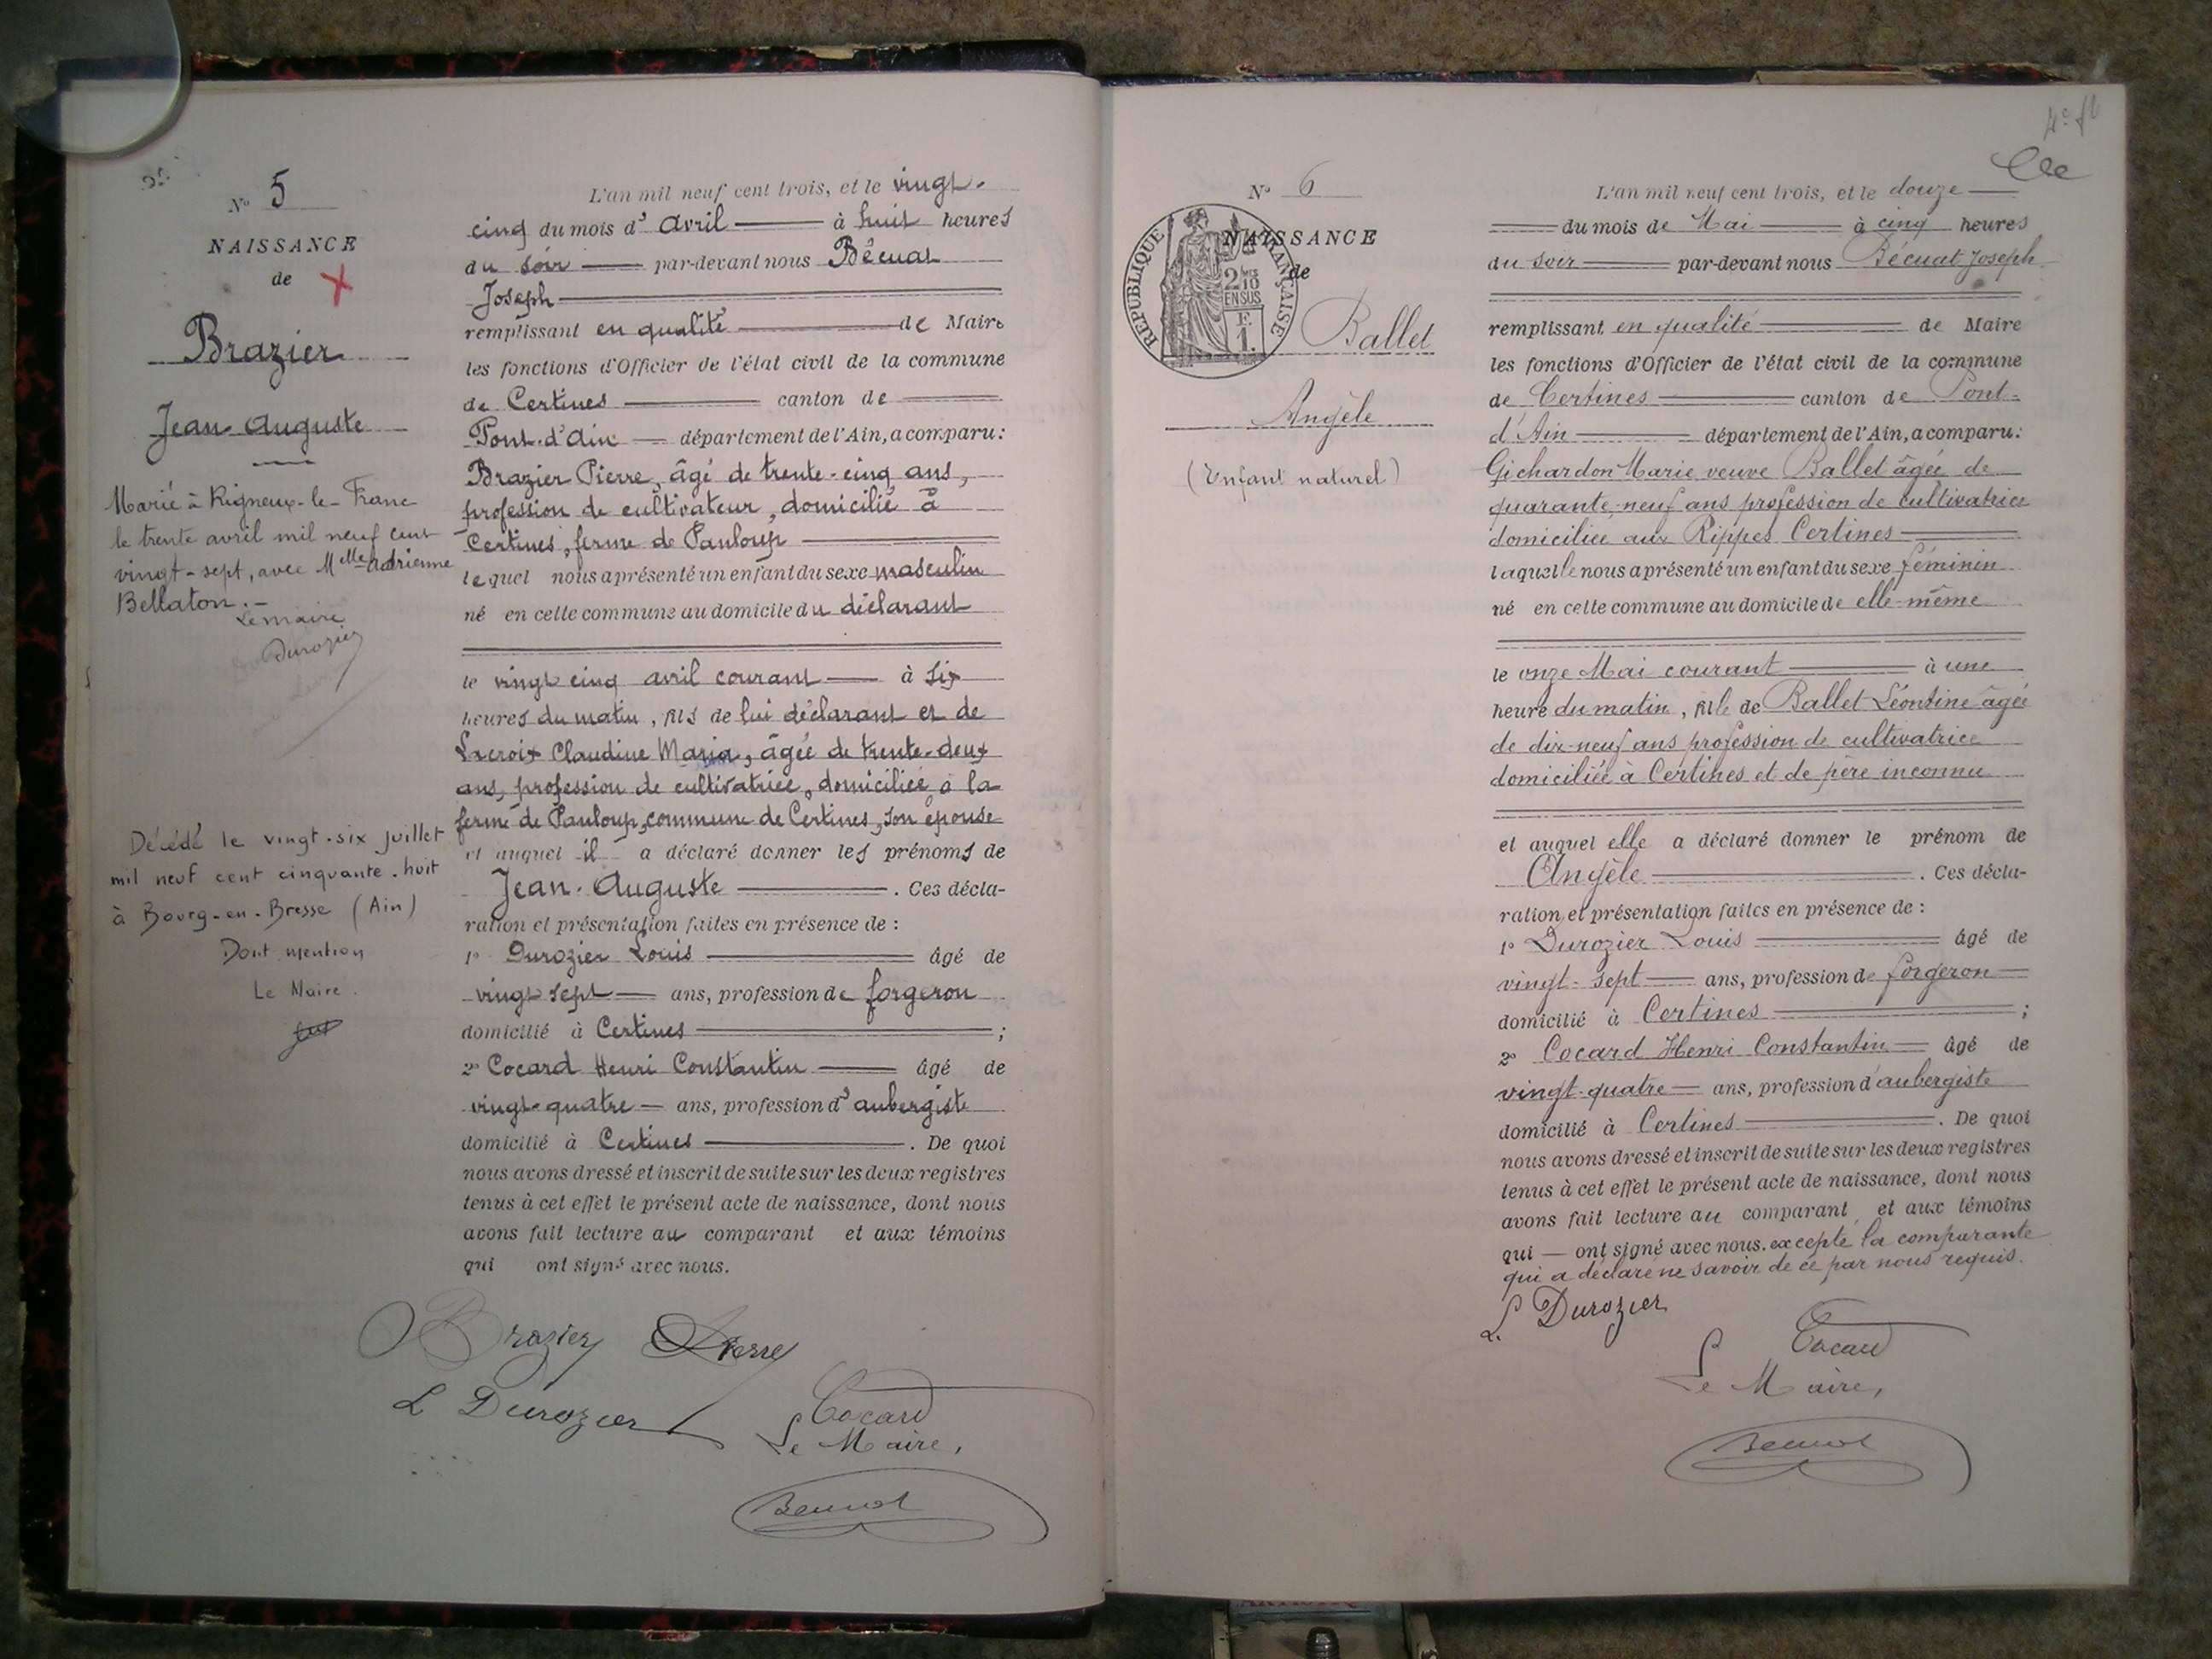 N° 5
NAISSANCE
de
Brazier
Jean Auguste
Marié à Rigneux-le-Franc
le trente avril mil neuf cent
vingt-sept, avec Mlle Adrienne
Bellaton.-
Le maire
Durozier
Décédé le vingt-six juillet
mil neuf cent cinquante-huit
à Bourg-en-Bresse (Ain)
Dont mention
Le Maire.
L'an mil neuf cent trois, et le vingt-
cinq du mois d'avril à huit heures
du soir par-devant nous Bécuat
Joseph
remplissant en qualité de Maire
les fonctions d'Officier de l'état civil de la commune
de Certines canton de
Pont-d'Ain département de l'Ain, a comparu:
Brazier Pierre, âgé de trente-cinq ans,
profession de cultivateur, domicilié à
Certines, ferme de Pauloup
lequel nous a présenté un enfant du sexe masculin
né en cette commune au domicile du déclarant
le vingt cinq avril courant à six
heures du matin, fils de lui déclarant et de
Lacroix Claudine Maria, âgée de trente-deux
ans, profession de cultivatrice, domiciliée à la
ferme de Pauloup, commune de Certines, son épouse
et auquel il a déclaré donner les prénoms de
Jean-Auguste. Ces décla-
ration et présentation faites en présence de :
1° Durozier Louis âgé de
vingt sept ans, profession de forgeron
domicilié à Certines ;
2° Cocard Henri Constantin âgé de
vingt-quatre ans, profession d'aubergiste
domicilié à Certines. De quoi
nous avons dressé et inscrit de suite sur les deux registres
tenus à cet effet le présent acte de naissance, dont nous
avons fait lecture au comparant et aux témoins
qui ont signé avec nous.
Brazier Pierre
L Durozier
Cocard
Le Maire,
Bécuat
4e ft
N° 6
NAISSANCE
de
REPUBLIQUE FRANÇAISE
2/10
EN SUS
F.
1.
Ballet
Angèle
(Enfant naturel)
L'an mil neuf cent trois, et le douze
du mois de Mai à cinq heures
du soir par-devant nous Bécuat Joseph
remplissant en qualité de Maire
les fonctions d'Officier de l'état civil de la commune
de Certines canton de Pont-
d'Ain département de l'Ain, a comparu:
Gichardon Marie veuve Ballet âgée de
quarante-neuf ans profession de cultivatrice
domiciliée aux Rippes Certines
laquelle nous a présenté un enfant du sexe féminin
né en cette commune au domicile de elle-même
le onze Mai courant à une
heure du matin, fille de Ballet Léontine âgée
de dix-neuf ans profession de cultivatrice
domiciliée à Certines et de père inconnu
et auquel elle a déclaré donner le prénom de
Angèle. Ces décla-
ration et présentation faites en présence de :
1° Durozier Louis âgé de
vingt-sept ans, profession de forgeron
domicilié à Certines ;
2° Cocard Henri Constantin âgé de
vingt-quatre ans, profession d'aubergiste
domicilié à Certines. De quoi
nous avons dressé et inscrit de suite sur les deux registres
tenus à cet effet le présent acte de naissance, dont nous
avons fait lecture au comparant et aux témoins
qui ont signé avec nous. excepté la comparante
qui a déclaré ne savoir de ce par nous requis.
L. Durozier
Cocard
Le Maire,
Bécuat